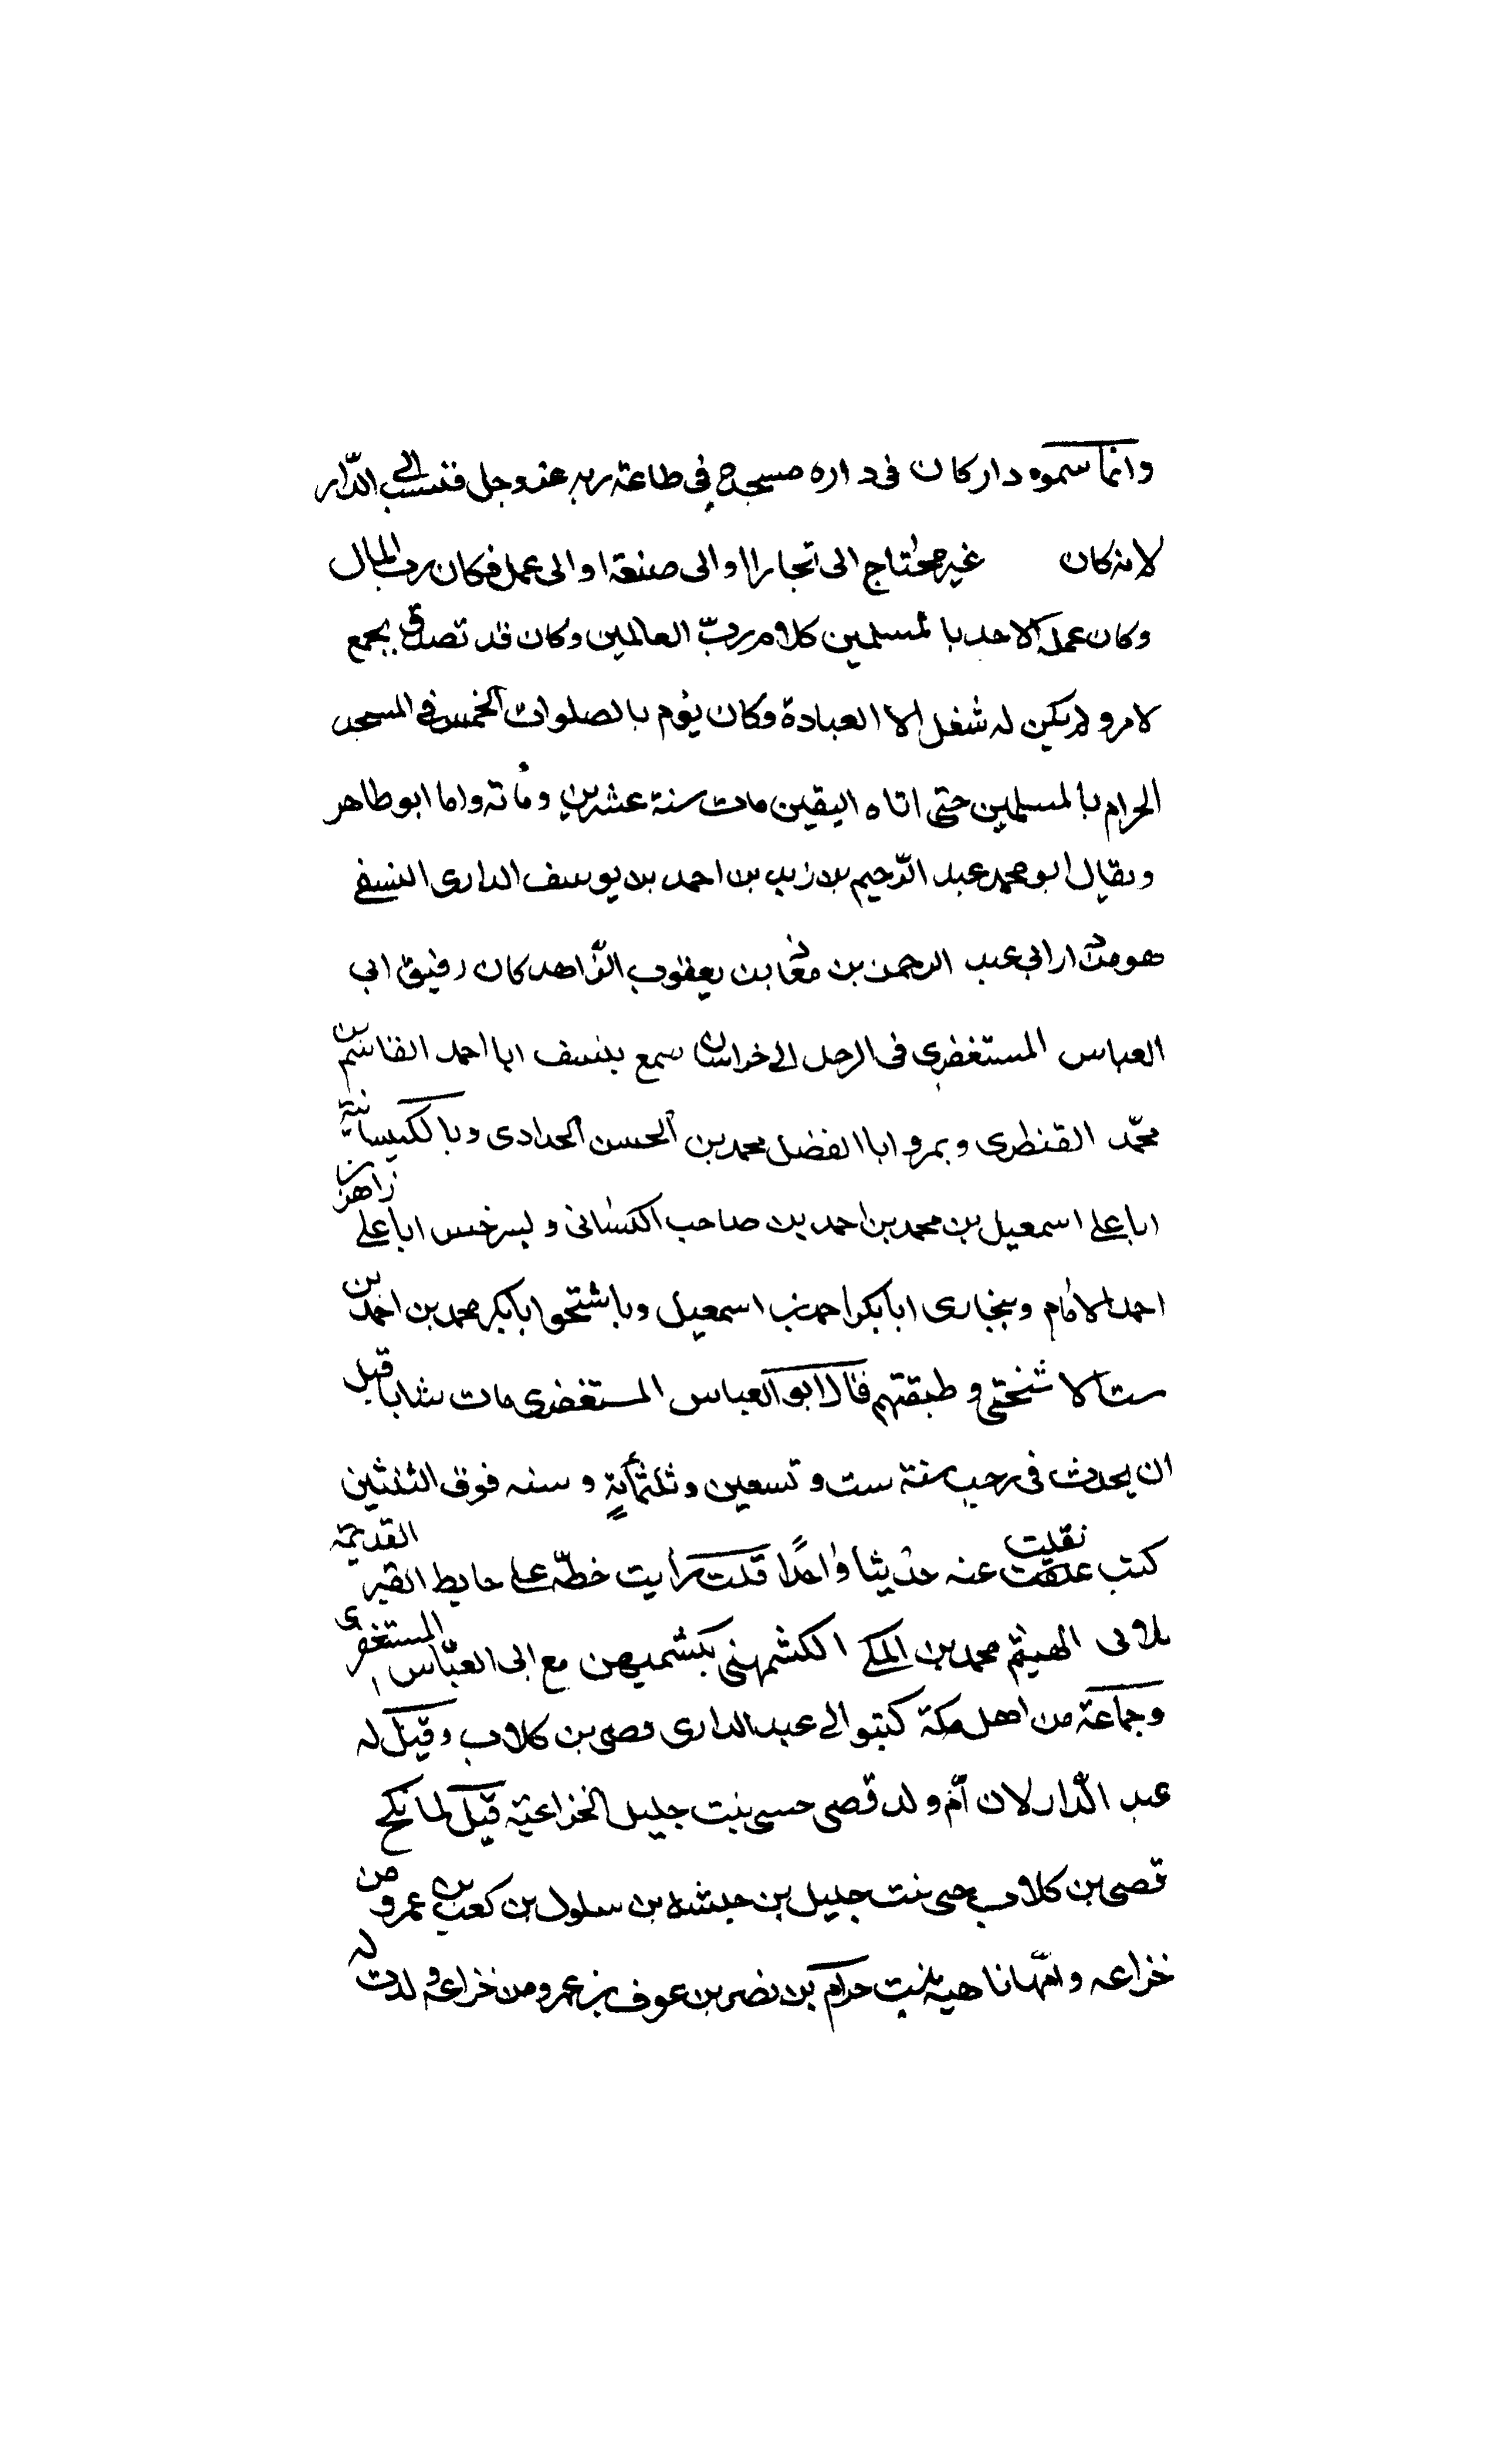 وانما سموه دار كان فى داره مسجد فى طاعة ربه عز وجل فنسب الى الدار
لانه كان غير محتاج الى تجارا او الى صنعة او الى عمل فكان رب المال
وكان عمله الاحد بالمسلمين كلام ربّ العالمين وكان قد تصدق بجمع
لامر ولم يكن له شغل الا العبادة وكان يؤم بالصلوات الخمس فى المسجد
الحرام بالمسلمين حتى اتاه اليقين مات سنة عشرين ومأته واما ابو طاهر
ويقال ابو محمد عبد الرّحيم بن زيد بن احمد بن يوسف الدارى النسفى
هو من دار ابى عبد الرحمن بن معاذ بن يعقوب الزّاهد كان رفيق ابى
العباس المستغفرى فى الرحل الى خراسان سمع بنسف ابا احمد القاسم بن
محمّد القنطرى وبمرو ابا الفضل محمد بن الحسن الحدادى وبالكيسانية
ابا على اسمعيل بن محمد بن احمد بن صاحب الكشانى وبسرخس ابا على زاهر بن
احمد الامام وبنجارى ابا بكر احمد بن اسمعيل وباشتحو ابا بكر محمد بن احمد بن
مت الاشتخنى وطبقتهم قال ابو العباس المستغفرى مات شابا قبل
ان يحدث فى رجب سنة ست وتسعين وثلثمأية وسنه فوق الثلثين
كتب علقت نقلت عنه حديثا واحدًا قلت رايت خطّه على حايط القبر القديمة
لابى الهيثم محمد بن المكى الكشمهنى بكشميهن مع ابى العبّاس المستغفرى
وجماعة من اهل مكة كتبوا الى عبد الدارى قصى بن كلاب وقيل له
عبد الدّار لان أمّ ولد قصى حبى بنت حليل الخزاعية قيل لما نكح
قصى بن كلاب حبى بنت حليل بن حبشة بن سلول بن كعب بن عمرو من
خزاعه وامّها ناهية بنت حرام بن نصر بن عوف بن عمرو من خزاعة ولدت له